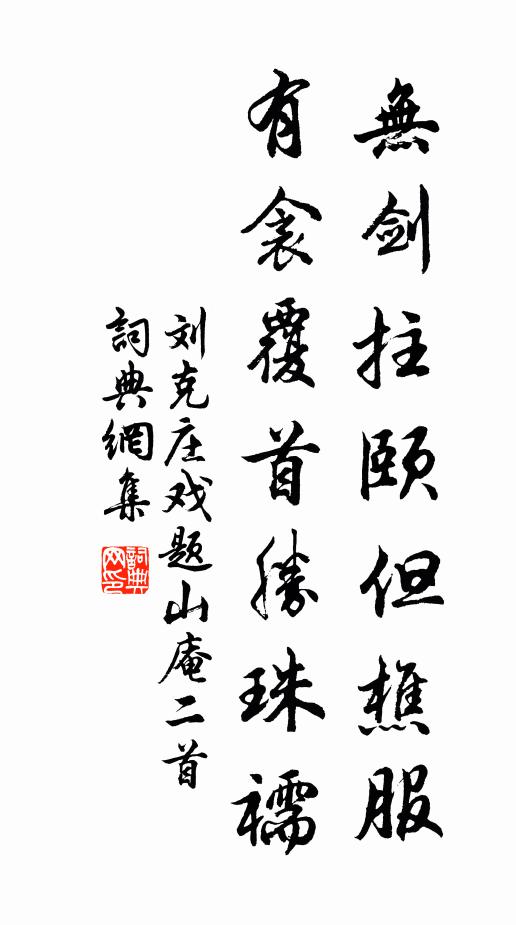 無劍拄頤但樵服
有衾覆首勝珠襦
刘克庄戏题山庵二首
詞典網集
詞典网印